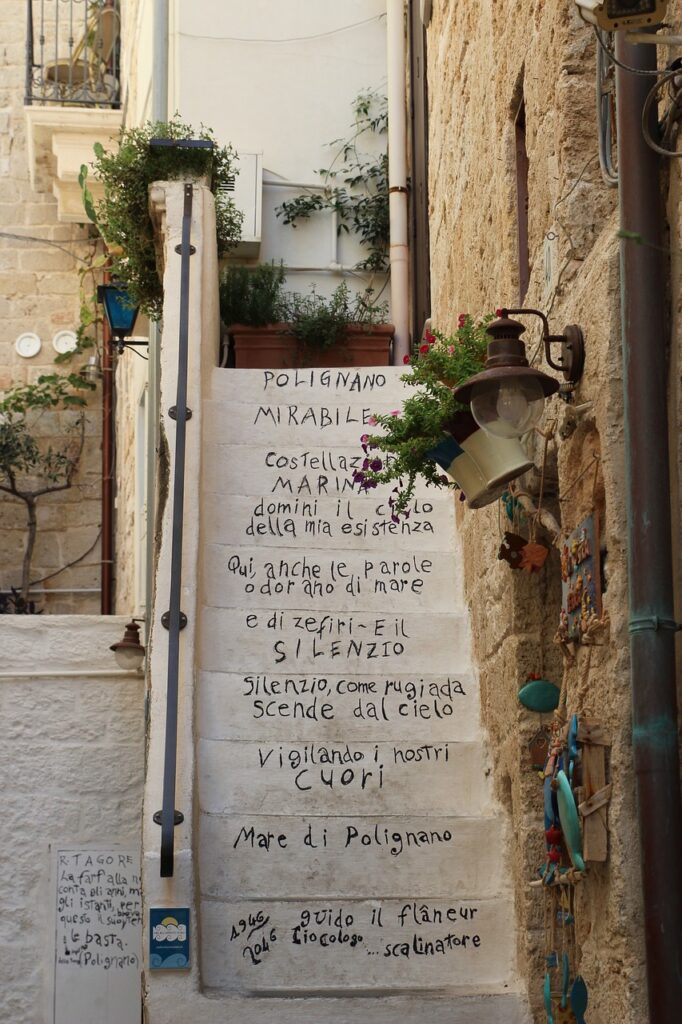 POLIGNANO
MIRABILE
COSTELLAZ
MARINA
domini il cielo
della mia esistenza
Qui, anche le parole
odorano di mare
e di zefiri - E il
SILENZIO
Silenzio, come rugiada
scende dal cielo
Vigilando i nostri
CUORI
Mare di Polignano
1946 guido il flâneur
2046 Ciocologo ... scalinatore
R. TAGORE
La farfalla n
conta gli anni, m
gli istanti, per
questo il suo
basta.
(Polignano)